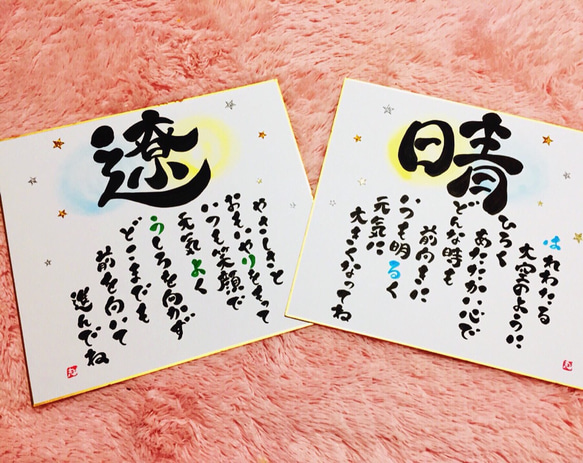 遼
やさしさと
おもいやりをもって
いつも笑顔で
元気よく
うしろを向かず
どこまでも
前を向いて
進んでね
晴
はれわたる
大空のように
ひろく
あたたかい心で
どんな時も
前向きに
いつも明るく
元気に
大きくなってね